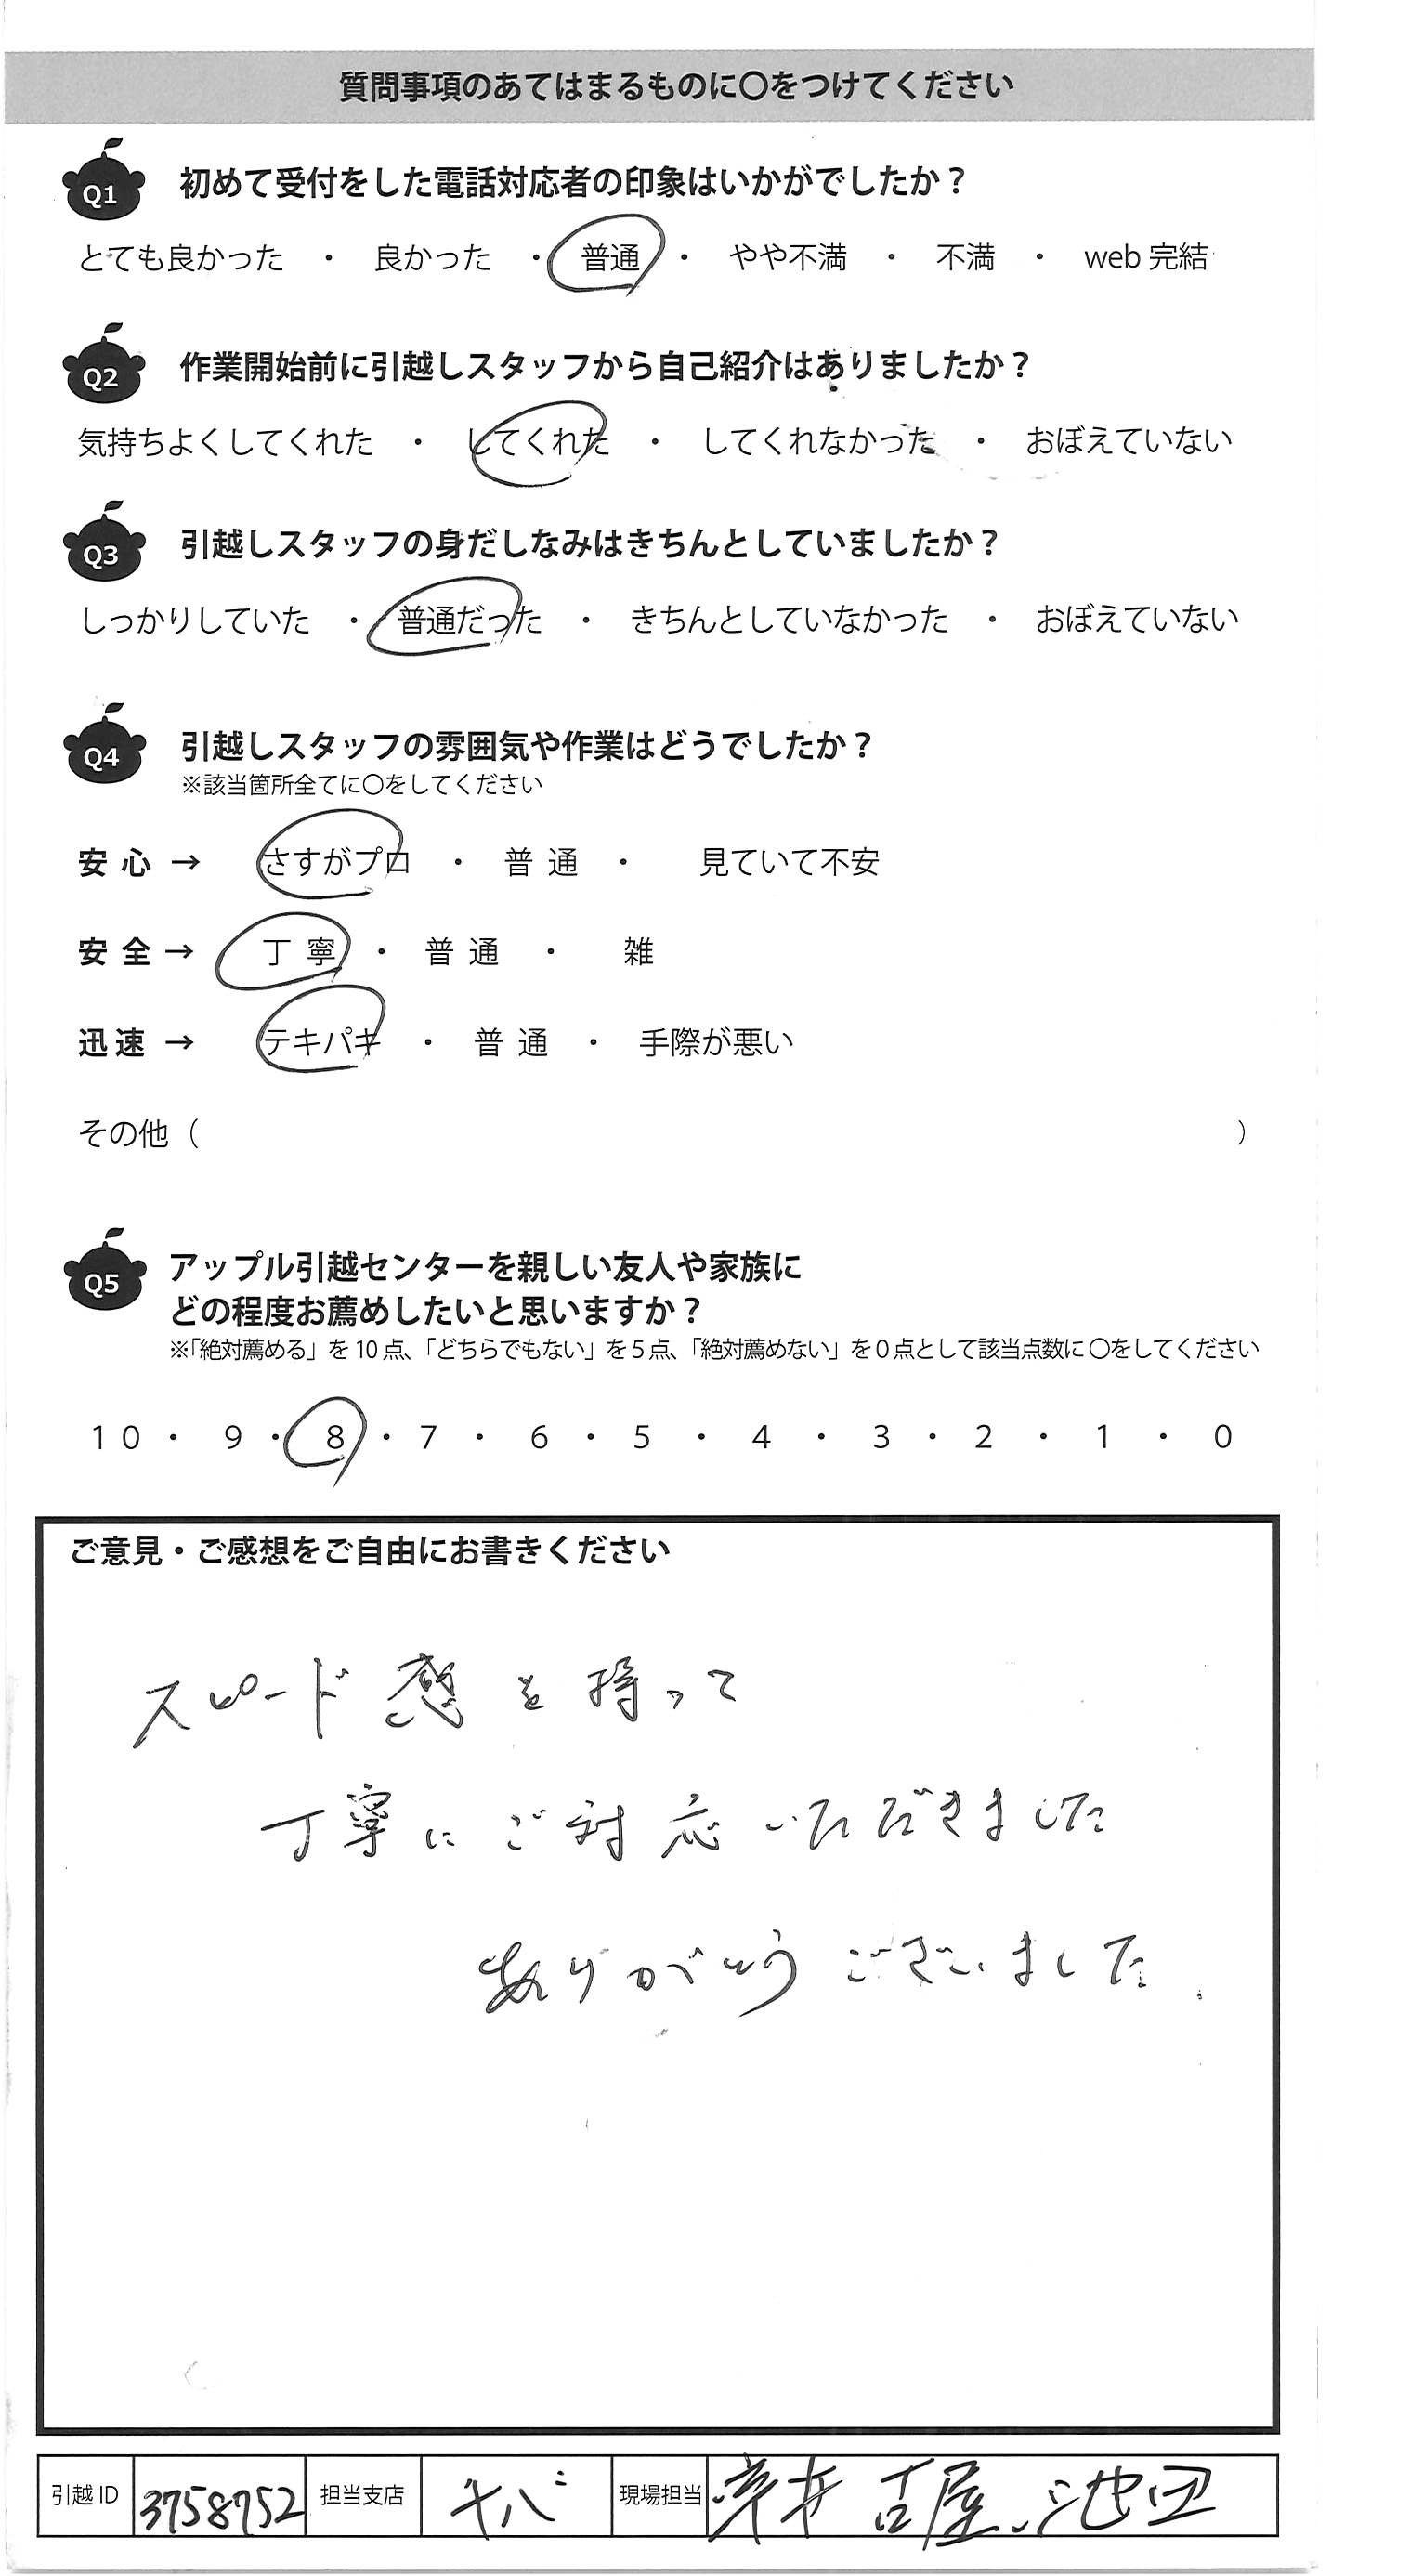 質問事項のあてはまるものに〇をつけてください
Q1 初めて受付をした電話対応者の印象はいかがでしたか？
とても良かった ・ 良かった ・ 普通 ・ やや不満 ・ 不満 ・ web 完結
Q2 作業開始前に引越しスタッフから自己紹介はありましたか？
気持ちよくしてくれた ・ してくれた ・ してくれなかった ・ おぼえていない
Q3 引越しスタッフの身だしなみはきちんとしていましたか？
しっかりしていた ・ 普通だった ・ きちんとしていなかった ・ おぼえていない
Q4 引越しスタッフの雰囲気や作業はどうでしたか？
※該当箇所全てに〇をしてください
安心 → さすがプロ ・ 普通 ・ 見ていて不安
安全 → 丁寧 ・ 普通 ・ 雑
迅速 → テキパキ ・ 普通 ・ 手際が悪い
その他（ ）
Q5 アップル引越センターを親しい友人や家族に
どの程度お薦めしたいと思いますか？
※「絶対薦める」を 10 点、「どちらでもない」を 5 点、「絶対薦めない」を 0 点として該当点数に 〇をしてください
10 ・ 9 ・ 8 ・ 7 ・ 6 ・ 5 ・ 4 ・ 3 ・ 2 ・ 1 ・ 0
ご意見・ご感想をご自由にお書きください
スピード感を持って
丁寧にご対応いただきました
ありがとうございました.
引越 ID 3758752 担当支店 キバ 現場担当 古屋、池田